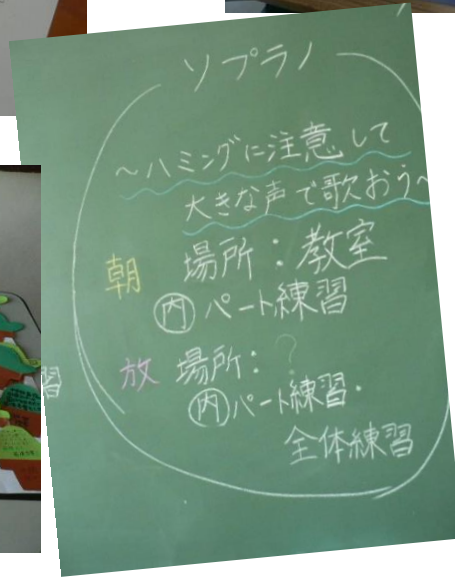 ソプラノ
～ハミングに注意して
大きな声で歌おう～
朝 場所：教室
㊅パート練習
放 場所：?
㊅パート練習・
全体練習
習